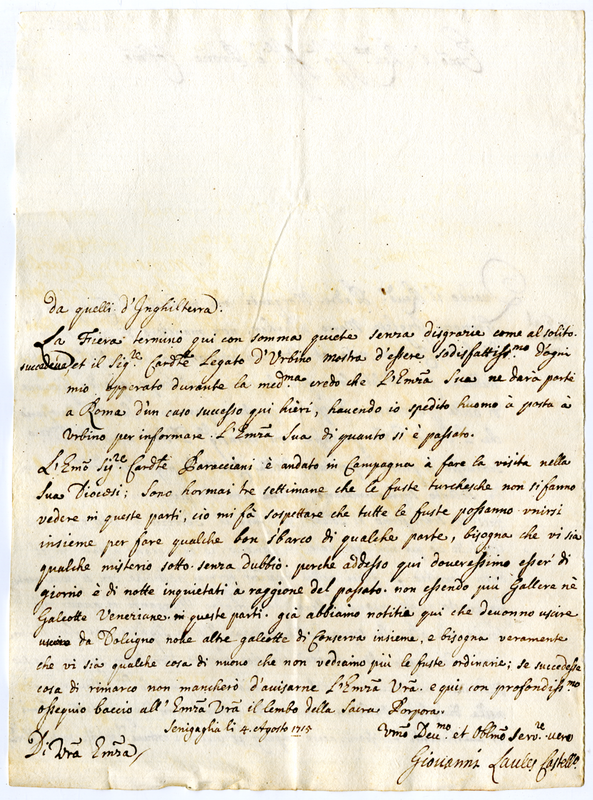 da quelli d'Inghilterra.
La Fiera terminò qui con somma quiete senza disgrazie come al solito
succedeva et il Sig.re Card.le Legato d'Urbino mostra d'essere sodisfattiss.mo d'ogni
mio opperato durante la med.ma credo che L'Emza Sua ne darà parte
a Roma d'un caso sucesso qui hieri, havendo io spedito huomo à posta à
Urbino per informare L'Emza Sua di quanto si è passato.
L'Emo Sig.re Card.le Paracciani è andato in Campagna à fare la visita nella
sua Diocesi; sono hormai tre settimane che le fuste turchesche non si fanno
vedere in queste parti, ciò mi fà sospettare che tutte le fuste possanno unirsi
insieme per fare qualche bon sbarco di qualche parte, bisogna che vi sia
qualche misterio sotto senza dubbio. perche addesso qui doveressimo esser di
giorno è di notte inquietati à raggione del passato. non essendo più Gallere nè
Galeotte Veneziane in queste parti. già abbiamo notitia qui che devonno uscire
da Dolcigno nove altre galeotte di Conserva insieme, e bisogna veramente
che vi sia qualche cosa di nuovo che non vediamo più le fuste ordinarie; se succedesse
cosa di rimarco non mancherò d'avisarne L'Emza Vra. e qui con profondiss.mo
ossequio baccio all'Emza Vra il lembo della Sacra Porpora.
Senigaglia li 4. Agosto 1715
Di Vra Emza
Umo Dev.mo et Oblmo Serv.re vero
Giovanni Laules Castell.o